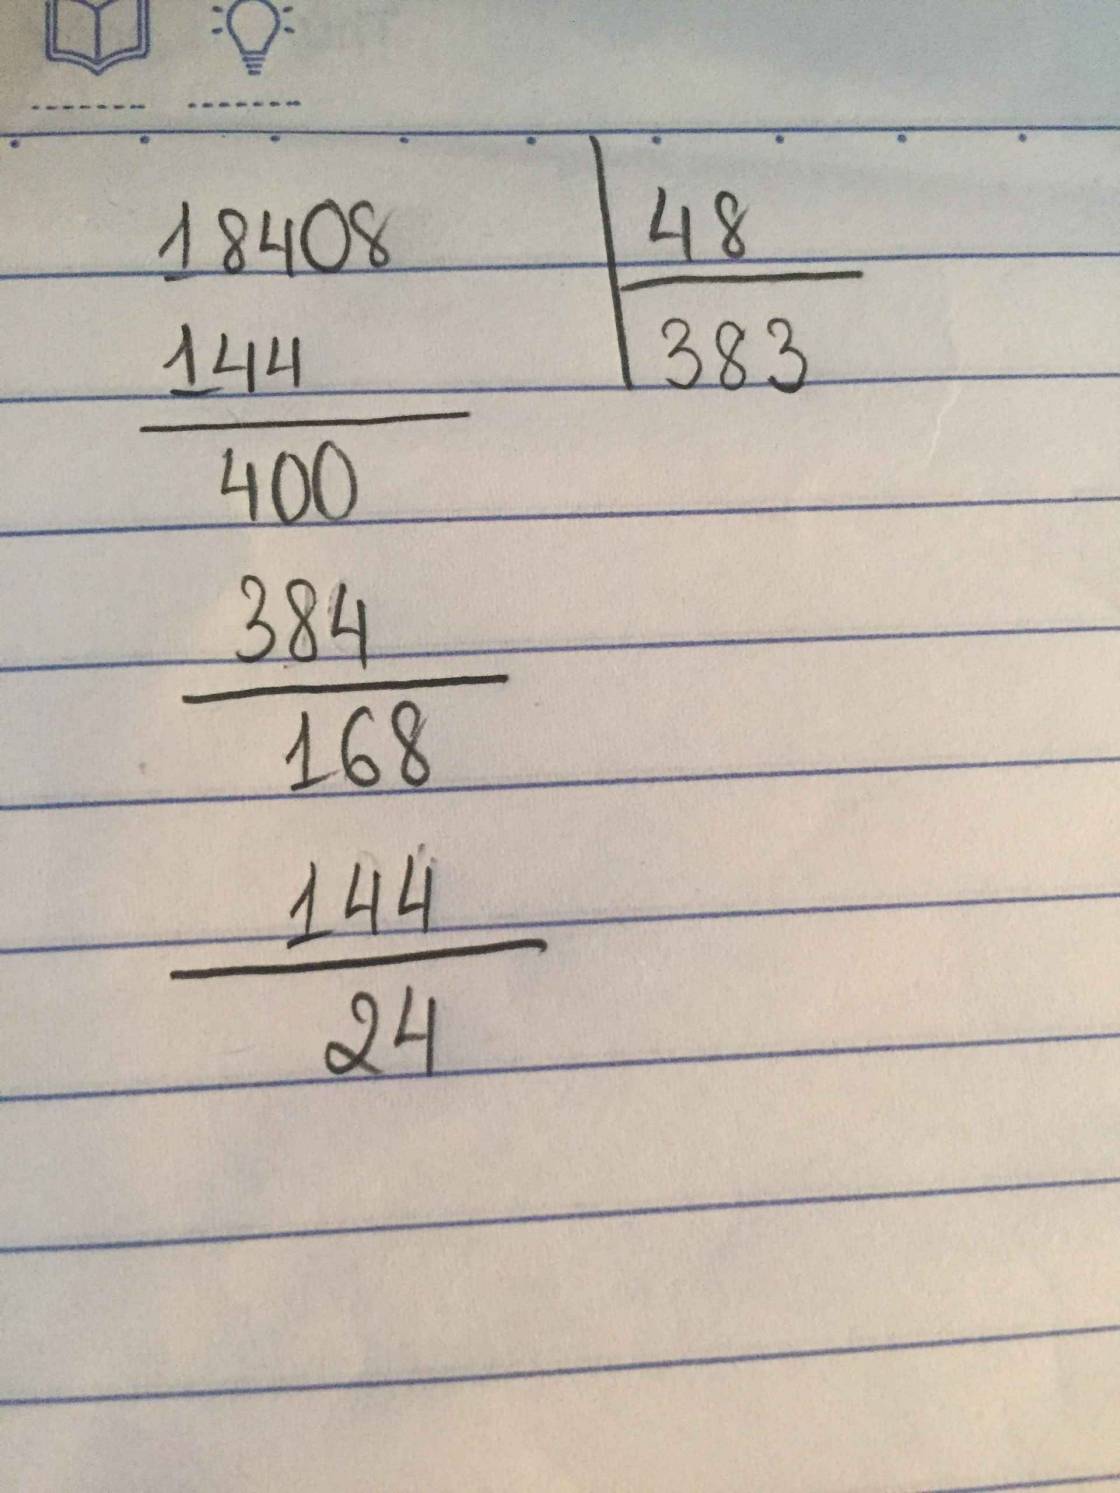 18408 48
144 383
400
384
168
144
24